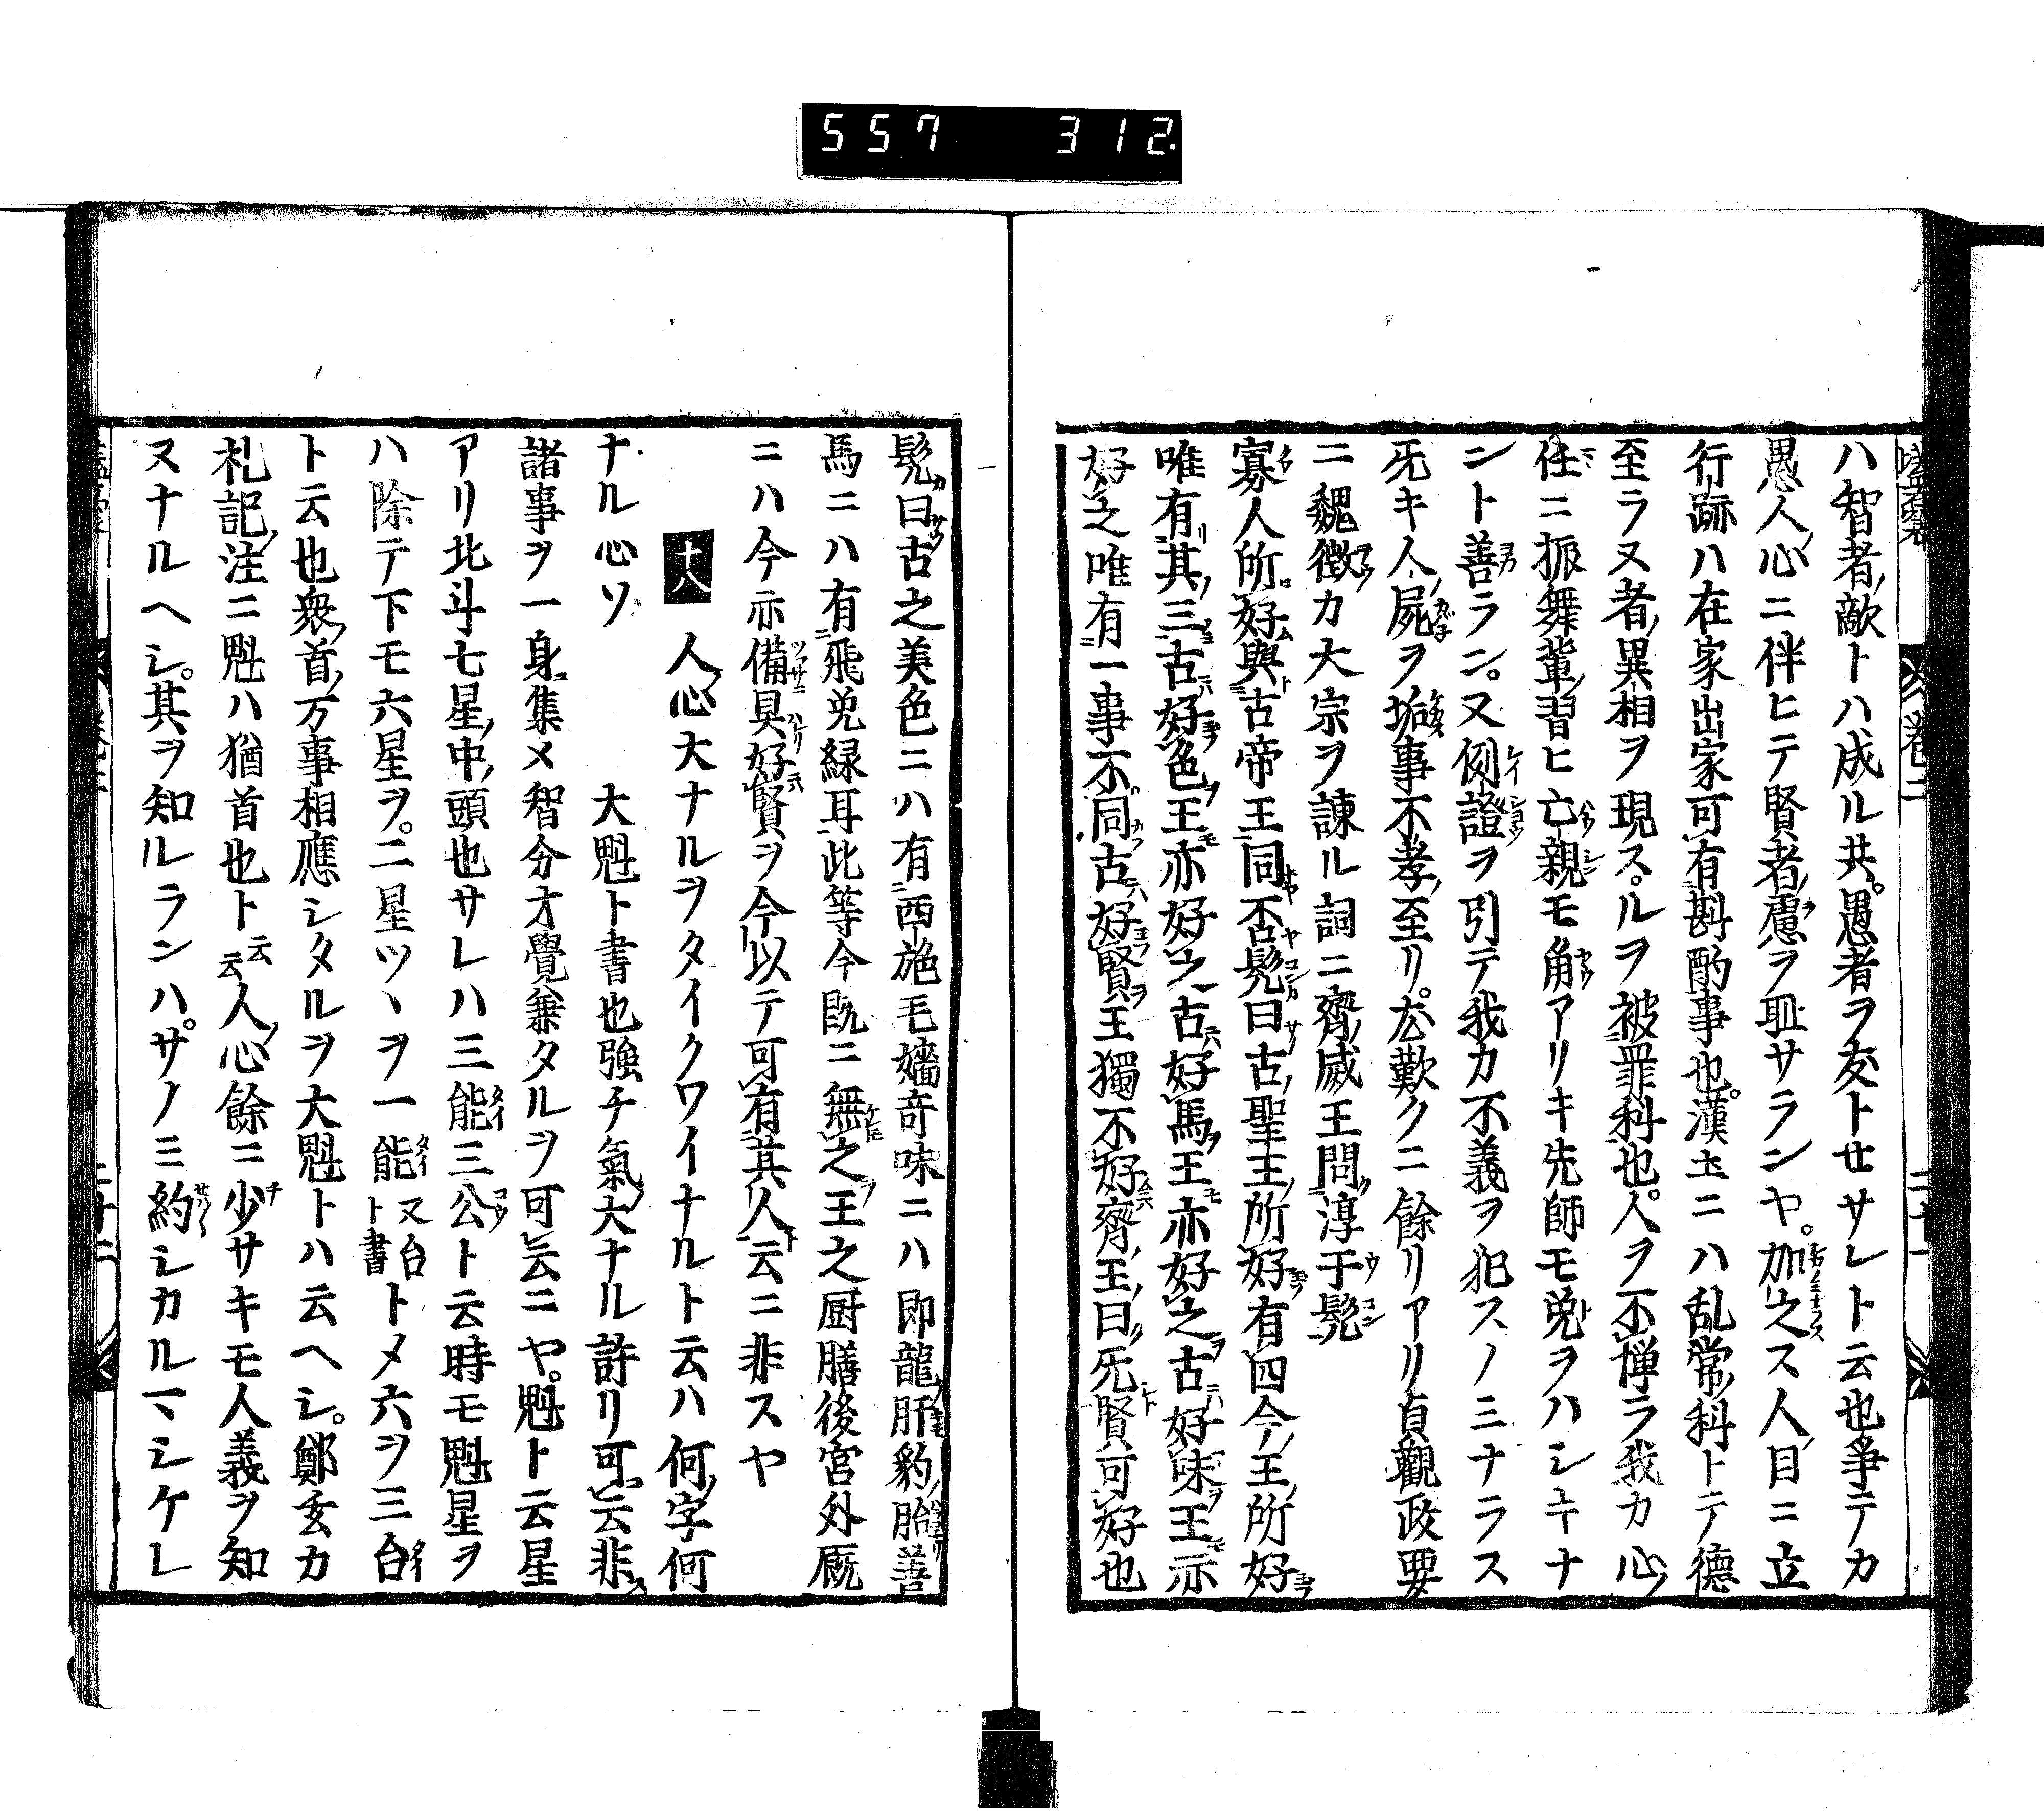 557 312
ハ智者ノ敵トハ成ル共。愚者ヲ友トセサレト云也爭テカ
愚人ノ心ニ伴ヒテ賢者ノ慮ヲ耻サランヤ。加之ス人ノ日ニ立
行跡ハ在家出家可有斟酌事也。漢土ニハ乱常ノ科トテ德
至ラヌ者ノ異相ヲ現スルヲ被罪科也。人ヲ不憚ラ我カ心ノ
任ニ振舞輩ノ習ヒ亡親モ角アリキ先師モ兎ヲハシキナ
ント善ラン。又例證ヲ引テ我カ不義ヲ犯スノミナラス
死キ人ノ屍ヲ垢事不孝ノ至リ。尤歎クニ餘リアリ貞觀政要
ニ魏徴カ大宗ヲ諌ル詞ニ齊ノ威王問淳于髡
寡人所好與古帝王同否髡曰古ノ聖主ノ所好有四今ノ王ノ所好
唯有其三古好色王亦好之古好馬王亦好之古好味王亦
好之唯有一事不同古好賢王獨不好齊ノ王曰死賢可好也
髡曰古之美色ニハ有西施毛嬙奇味ニハ即龍肝豹ノ胎善
馬ニハ有飛兎緑耳此等今既ニ無之王之厨膳後宮外厩
ニハ今亦備具好賢ヲ今以テ可有其人云ニ非スヤ
十八 人ノ心大ナルヲタイクワイナルト云ハ何ノ字何
ナル心ソ 大魁ト書也強チ氣大ナル許リ可云非
諸事ヲ一身集メ智分才覺兼タルヲ可云ニヤ。魁ト云星
アリ北斗七星ノ中ノ頭也サレハ三能三公ト云時モ魁星ヲ
ハ除テ下モ六星ヲ。二星ツヽヲ一能又台ト書トメ六ヲ三台
ト云也衆ノ首ノ万事相應シタルヲ大魁トハ云ヘシ。鄭玄カ
札記ノ注ニ魁ハ猶首也ト云云人ノ心餘ニ少サキモ人義ヲ知
ヌナルヘシ。其ヲ知ルランハ。サノミ約シカルマシケレ